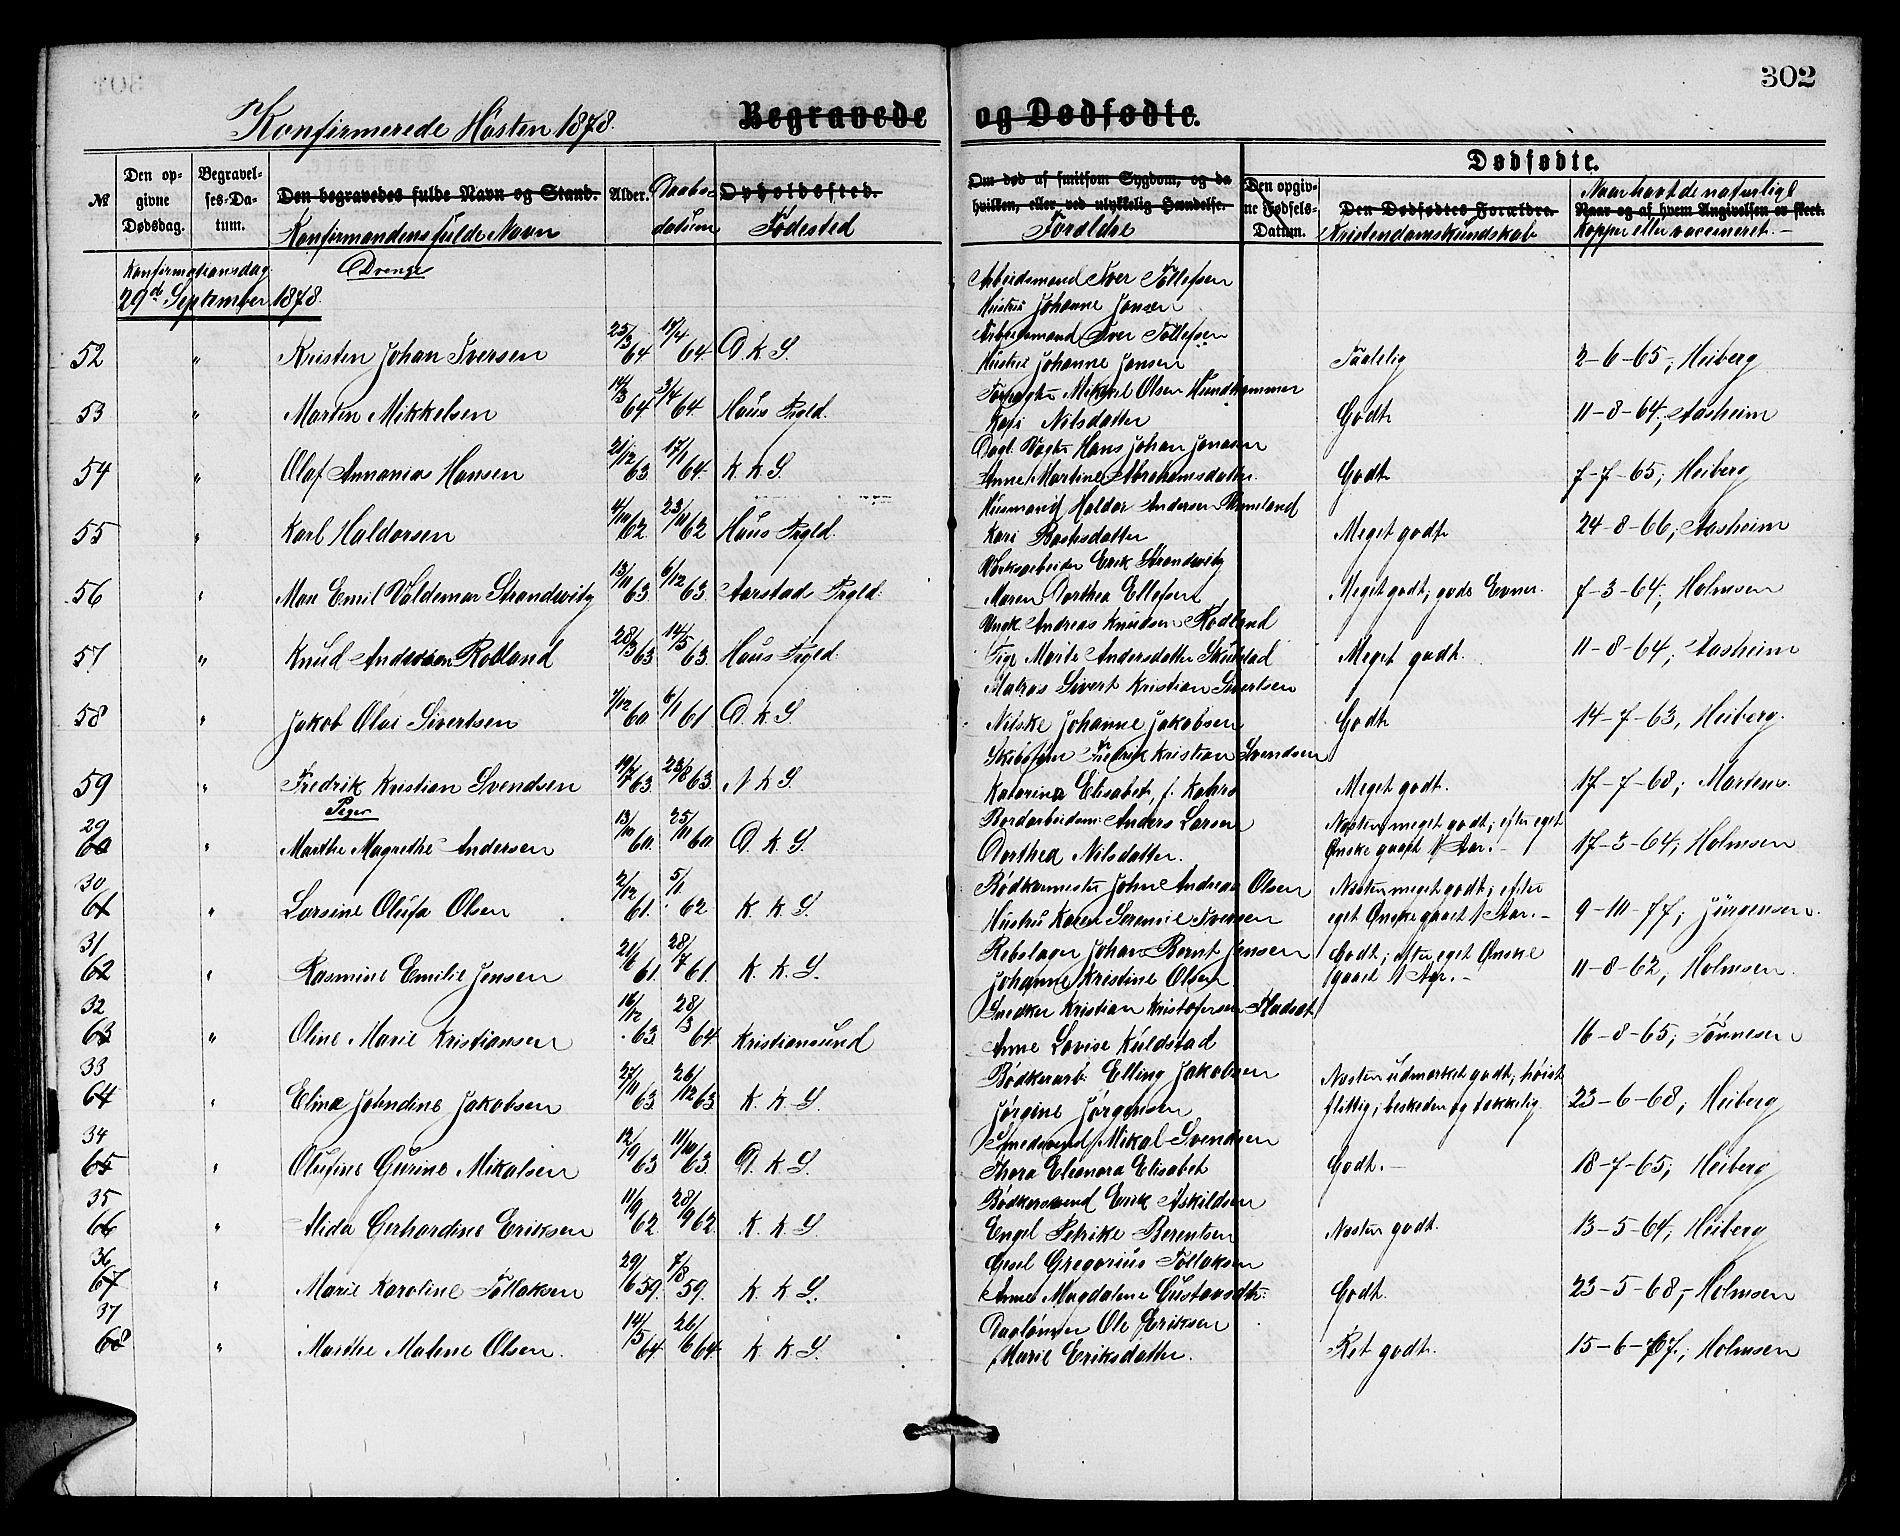 302
Konfirmerede Høsten 1878.
Begravede og Dødfødte.
№
Den opgivne Dødsdag.
Begravelses-Datum.
Den begravedes fulde Navn og Stand.
Konfirmandens fulde Navn
Alder.
Daabsdatum
Opholdssted.
Fødested
Om død af smitsom Sygdom, og da hvilken, eller ved ulykkelig Hændelse.
Forældre
Dødfødte.
Den opgivne Fødsels-Datum.
Den Dødfødtes Forældre.
Kristendomskundskab
Naar og af hvem Angivelsen er skeet.
Naar havt de naturlige Kopper eller vaccineret.
Konfirmationsdag
29d September 1878.
Drenge
Arbeidsmand Iver Tollefsen
Hustru Johanne Jansen
52 " Kristen Johan Iversen 25/3 64 17/4 64. D. K. S. Arbeidsmand Iver Tollefsen
Hustru Johanne Jansen Taalelig 2-6-65, Heiberg
53 " Martin Mikkelsen 14/3 64 3/4 64 Haus Prgld. Mikkel Olsen Hundhammer
Kari Nilsdatter Godt 11-8-64, Aasheim
54 " Olaf Annanias Hansen 21/12 63 17/1 64. K. K. S. Hans Johan Jonasen
Anne Martine Abrahamsdatter. Godt 7-7-65, Heiberg
55 " Karl Haldorsen 4/10 62. 23/11 62 Haus Prgld. Husmand Haldor Andersen
Kari Meget godt 24-8-66, Aasheim
56 " Emil Valdemar Strandwity 13/11 63 6/12 63. Aarstad Prgld. Erik Strandwity
Maren Dorthea Ellefsen Meget godt, gode Evner. 7-3-64, Holmsen
57 " Knud Andersen Rødland 28/3 63 14/5 63. Haus Prgld. Ungk. Andreas Knudsen Rødland
Pige Marte Andersdatter Meget godt. 11-8-64, Aasheim
58 " Jakob Olai Sivertsen 7/12 60. 6/1 61 D. K. S. Matros Sivert Kristian Sivertsen
Johanne Jakobsen Godt 14-7-63, Heiberg.
59 " Fredrik Kristian Svendsen 19/7 63. 23/8 63. N. K. S. Fredrik Kristian Svendsen
Katarina Elisabet, f. Kahrs Meget godt. 17-7-68, Martens.
Piger
29 60 " Marthe Magrethe Andersen 13/10 60. 25/11 60 D. K. S. Anders Larsen
Dorthea Nilsdatter. Næsten meget godt; efter eget
Ønske gaaet 1 Aar. 17-3-64, Holmsen
30 61 " Larsine Olufa Olsen 2/12 61. 5/1 62 K. K. S. Bødkermester John Andreas Olsen
Hustru Karen Severine Iversen Næsten meget godt; efter
eget Ønske gaaet 1 Aar. 9-10-77; Jürgensen.
31 62 " Rasmine Emilie Jensen 21/6 61. 28/7 61. K. K. S. Rebslager Johan Bernt Jensen
Johanne Kristine Olsen Godt; efter eget Ønske
gaaet 1 Aar. 11-8-62, Holmsen.
32 63 " Oline Marie Kristiansen 16/12 63. 28/3 64 Kristiansund Snedker Kristian Kristofersen
Anne Lovise Kuldstad 16-8-65; Tønnesen
33 64 " Eline Johndine Jakobsen 27/11 63 26/12 63. K. K. S. Bødkerarb. Elling Jakobsen
Jørgine Jørgensen Næsten udmærket godt; høist
flittig; beskeden og tækkelig. 23-6-68; Heiberg
34 65 " Olufine Gurine Mikalsen 12/9 63 11/10 63. D. K. S. Smedsvend Mikal Svendsen
Thora Eleonora Elisabet Godt. 18-7-65, Heiberg
35 66 " Alida Gerhardine Eriksen 11/9 62. 28/9 62. K. K. S. Bødkersvend Erik Askildsen
Engel Petrike Berentsen Næsten godt. 13-5-64, Heiberg
36 67 " Marie Karoline Tollaksen 29/6 59. 7/8 59. K. K. S. Gregorius Tollaksen
Anne Magdalene Gustavsdtr. Godt. 23-5-68, Holmsen
37 68 " Marthe Malene Olsen. 14/5 64 26/6 64. K. K. S. Dagløner Ole Eriksen
Marie Eriksdatter. Ret godt. 15-6-67., Holmsen